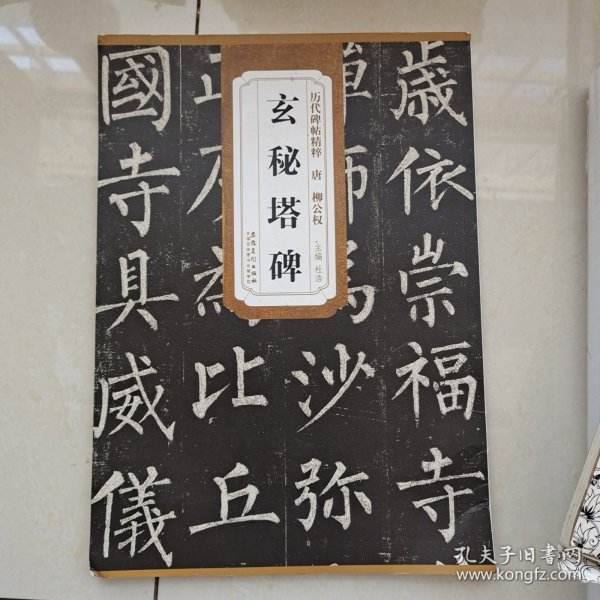 历代碑帖精粹 唐 柳公权
主编 杜浩
玄秘塔碑
安徽美术出版社
歲依崇福寺
師爲沙弥
正
比丘
國寺具威儀
孔夫子旧书网
www.kongfz.com